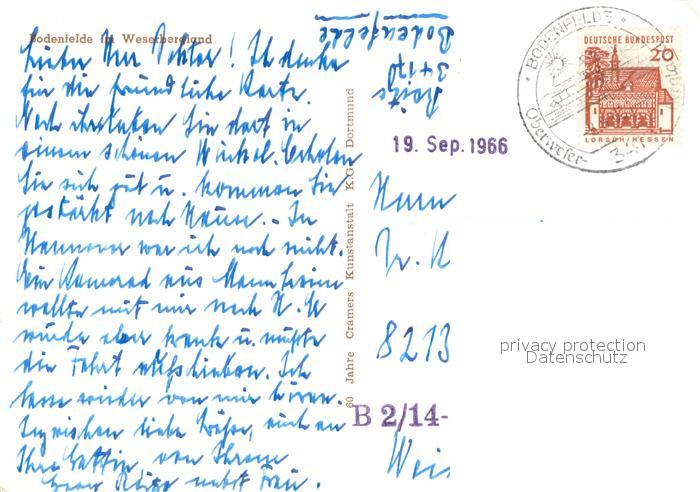 Bodenfelde im Weserbergland
Lieber Herr Doktor! Ich danke
für die freundliche Karte.
Nach ihr haben Sie dort in
einem schönen Winkel. Erholen
Sie sich gut u. kommen Sie
gestärkt nach Hause. - In
Hannover war ich noch nicht.
Ein Kamerad aus Mannheim
wollte mit mir nach H. Er
wurde aber krank u. mußte
die Fahrt aufschieben. Ich
lasse wieder von mir hören.
Inzwischen liebe Grüße, auch an
Ihre Gattin, von Ihrem
nebst Frau.
3417
Bodenfelde
60 Jahre Cramers Kunstanstalt K.G. Dortmund
DEUTSCHE BUNDESPOST
20
LORSCH/HESSEN
BODENFELDE
Oberweser-
19. Sep. 1966
Herrn
Dr. H
8213
B 2/14-
Weis
privacy protection
Datenschutz